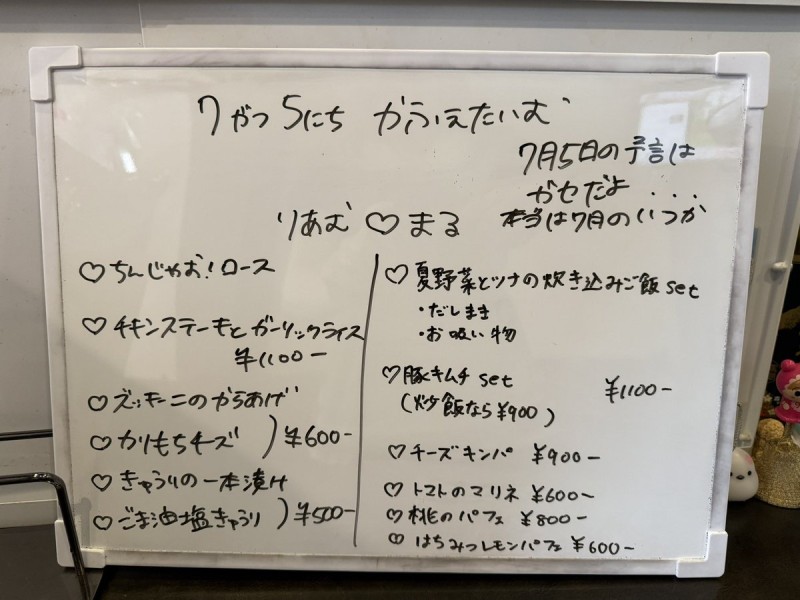 7がつ5にち かふぇたいむ
7月5日の予言は
ガセだよ...
本当は7月のいつか
りあむ♡まる
♡ちんじゃお!ロース
♡チキンステーキとガーリックライス
¥1100-
♡ズッキーニのからあげ
♡かりもちチーズ )¥600-
♡きゅうりの一本漬け
♡ごま油塩きゅうり )¥500-
♡夏野菜とツナの炊き込みご飯set
・だしまき
・お吸い物
♡豚キムチset ¥1100-
(炒飯なら¥900)
♡チーズキンパ ¥900-
♡トマトのマリネ ¥600-
♡桃のパフェ ¥800-
♡はちみつレモンパフェ ¥600-